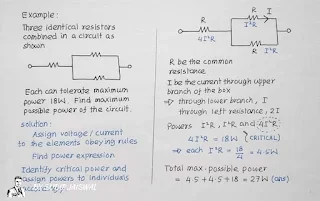 Example:
Three identical resistors
combined in a circuit as
shown
Each can tolerate maximum
power 18W. Find maximum
possible power of the circuit.
solution:
Assign voltage/current
to the elements obeying rules
Find power expression
Identify critical power and
assign powers to individuals
R
4I²R
R
I
I²R
R
I²R
R be the common
resistance.
I be the current through upper
branch of the box
⇒ through lower branch, I
through left resistance, 2I
Powers I²R, I²R and 4I²R.
4I²R = 18W (CRITICAL)
⇒ each I²R = 18/4 = 4.5W
Total max. possible power
= 4.5 + 4.5 + 18 = 27W (ans)